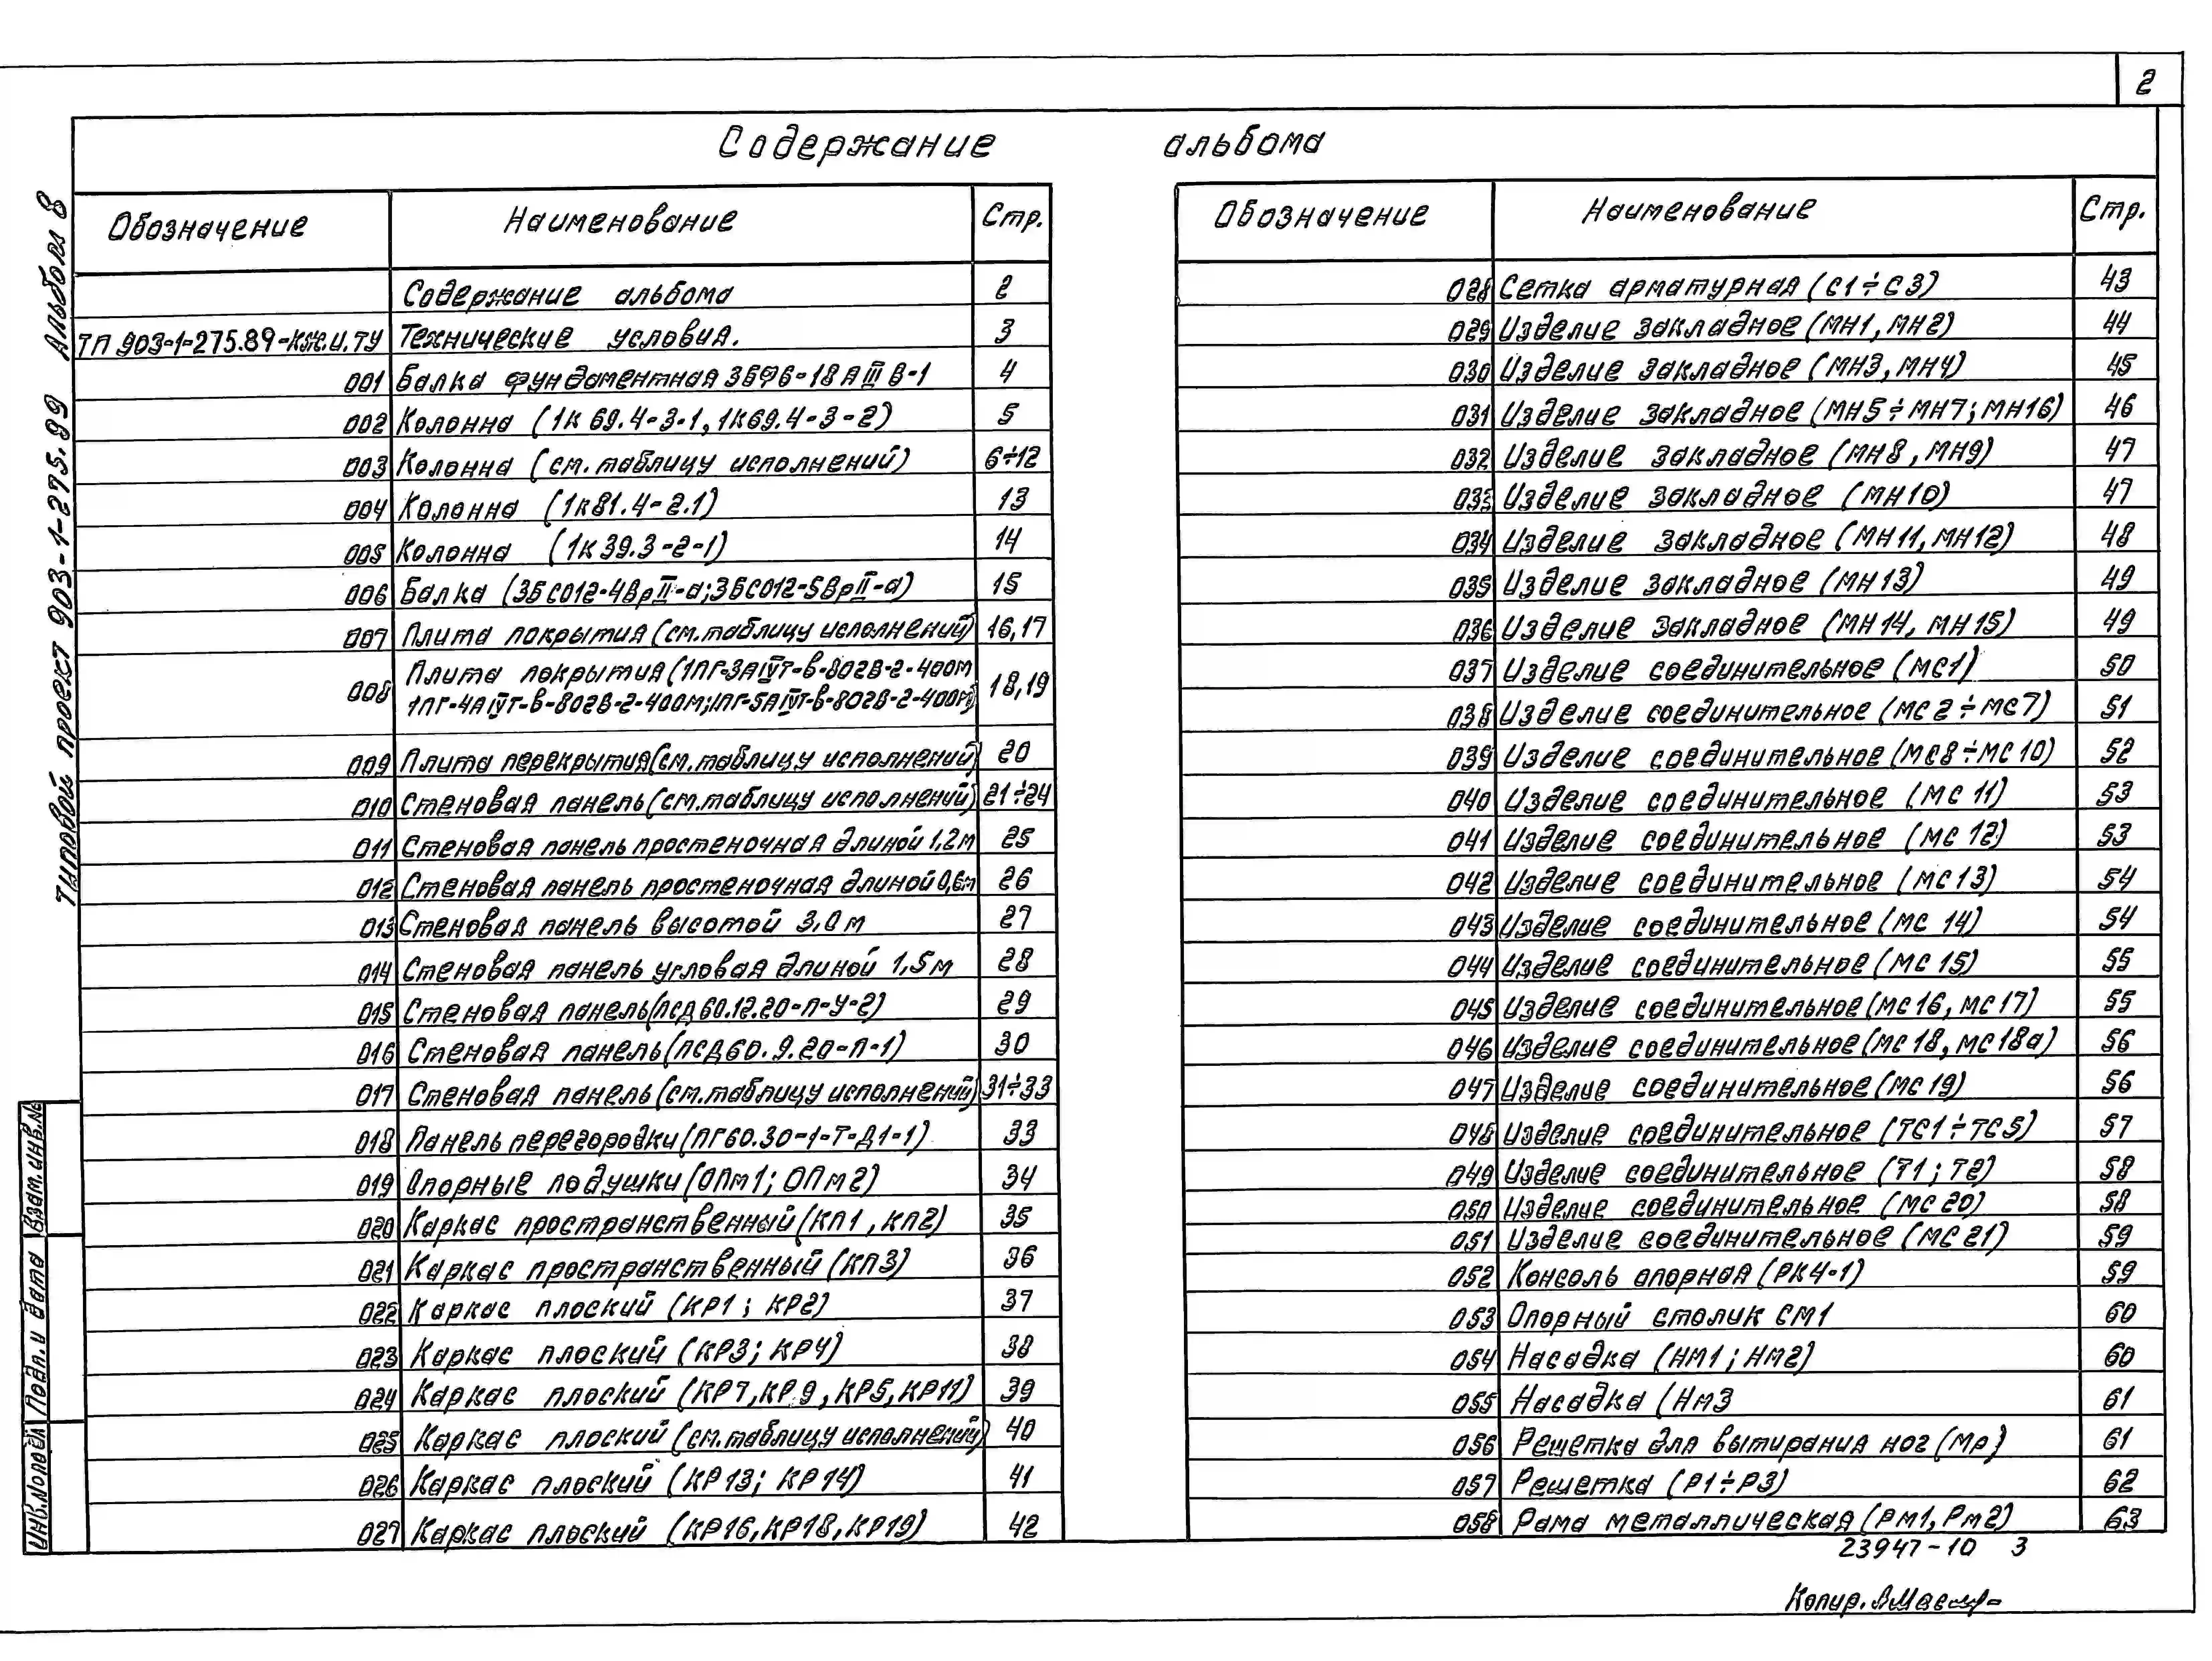 2
Содержание альбома
Обозначение Наименование Стр.
Содержание альбома 2
ТП 903-1-275.89-КЖ.И.ТУ Технические условия. 3
001 Балка фундаментная 3БФ6-18АIIIв-1 4
002 Колонна (1К69.4-3-1, 1К69.4-3-2) 5
003 Колонна (см. таблицу исполнений) 6÷12
004 Колонна (1К81.4-2.1) 13
005 Колонна (1К39.3-2-1) 14
006 Балка (3БСО12-4ВрII-а; 3БСО12-5ВрII-а) 15
007 Плита покрытия (см. таблицу исполнений) 16,17
008 Плита покрытия (1ПГ-3АIVт-в-802В-2-400м 18,19
1ПГ-4АIVт-в-802В-2-400м; 1ПГ-5АIVт-в-802В-2-400м)
009 Плита перекрытия (см. таблицу исполнений) 20
010 Стеновая панель (см. таблицу исполнений) 21÷24
011 Стеновая панель простеночная длиной 1,2м 25
012 Стеновая панель простеночная длиной 0,6м 26
013 Стеновая панель высотой 3,0 м 27
014 Стеновая панель угловая длиной 1,5м 28
015 Стеновая панель (ПСД60.12.20-П-У-2) 29
016 Стеновая панель (ПСД60.9.20-П-1) 30
017 Стеновая панель (см. таблицу исполнений) 31÷33
018 Панель перегородки (ПГ60.30-1-Т-Д1-1) 33
019 Опорные подушки (ОПм1; ОПм2) 34
020 Каркас пространственный (КП1, КП2) 35
021 Каркас пространственный (КП3) 36
022 Каркас плоский (КР1; КР2) 37
023 Каркас плоский (КР3; КР4) 38
024 Каркас плоский (КР7, КР.9, КР5, КР11) 39
025 Каркас плоский (см. таблицу исполнений) 40
026 Каркас плоский (КР13; КР14) 41
027 Каркас плоский (КР16, КР18, КР19) 42
Обозначение Наименование Стр.
028 Сетка арматурная (С1÷С3) 43
029 Изделие закладное (МН1, МН2) 44
030 Изделие закладное (МН3, МН4) 45
031 Изделие закладное (МН5÷МН7; МН16) 46
032 Изделие закладное (МН8, МН9) 47
033 Изделие закладное (МН10) 47
034 Изделие закладное (МН11, МН12) 48
035 Изделие закладное (МН13) 49
036 Изделие закладное (МН14, МН15) 49
037 Изделие соединительное (МС1) 50
038 Изделие соединительное (МС2÷МС7) 51
039 Изделие соединительное (МС8÷МС10) 52
040 Изделие соединительное (МС 11) 53
041 Изделие соединительное (МС 12) 53
042 Изделие соединительное (МС13) 54
043 Изделие соединительное (МС 14) 54
044 Изделие соединительное (МС 15) 55
045 Изделие соединительное (МС16, МС17) 55
046 Изделие соединительное (МС18, МС18а) 56
047 Изделие соединительное (МС19) 56
048 Изделие соединительное (ТС1÷ТС5) 57
049 Изделие соединительное (Т1; Т2) 58
050 Изделие соединительное (МС20) 58
051 Изделие соединительное (МС21) 59
052 Консоль опорная (РК4-1) 59
053 Опорный столик СМ1 60
054 Насадка (НМ1; НМ2) 60
055 Насадка (НМ3 61
056 Решетка для вытирания ног (Мр) 61
057 Решетка (Р1÷Р3) 62
058 Рама металлическая (РМ1, РМ2) 63
23947-10 3
Копир.
Типовой проект 903-1-275.99 Альбом 8
Взам. инв. №
Подп. и дата
Инв. № подл